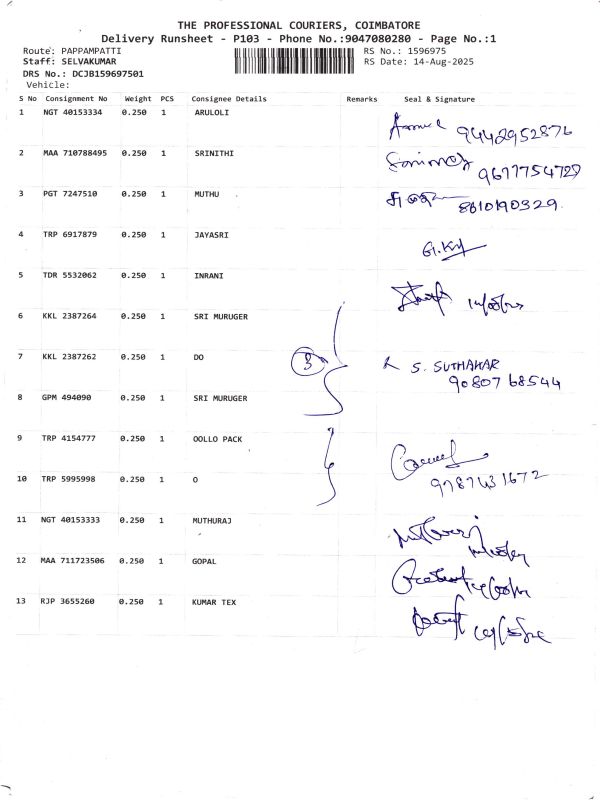 THE PROFESSIONAL COURIERS, COIMBATORE
Delivery Runsheet - P103 - Phone No.:9047080280 - Page No.:1
Route: PAPPAMPATTI RS No.: 1596975
Staff: SELVAKUMAR RS Date: 14-Aug-2025
DRS No.: DCJB159697501
Vehicle:
S No Consignment No Weight PCS Consignee Details Remarks Seal & Signature
1 NGT 40153334 0.250 1 ARULOLI
9442952876
2 MAA 710788495 0.250 1 SRINITHI
9677754729
3 PGT 7247510 0.250 1 MUTHU
8610190329
4 TRP 6917879 0.250 1 JAYASRI
5 TDR 5532062 0.250 1 INRANI
6 KKL 2387264 0.250 1 SRI MURUGER
7 KKL 2387262 0.250 1 DO 3 S. SUTHAKAR
9080768544
8 GPM 494090 0.250 1 SRI MURUGER
9 TRP 4154777 0.250 1 OOLLO PACK
10 TRP 5995998 0.250 1 O
9787431672
11 NGT 40153333 0.250 1 MUTHURAJ
12 MAA 711723506 0.250 1 GOPAL
13 RJP 3655260 0.250 1 KUMAR TEX